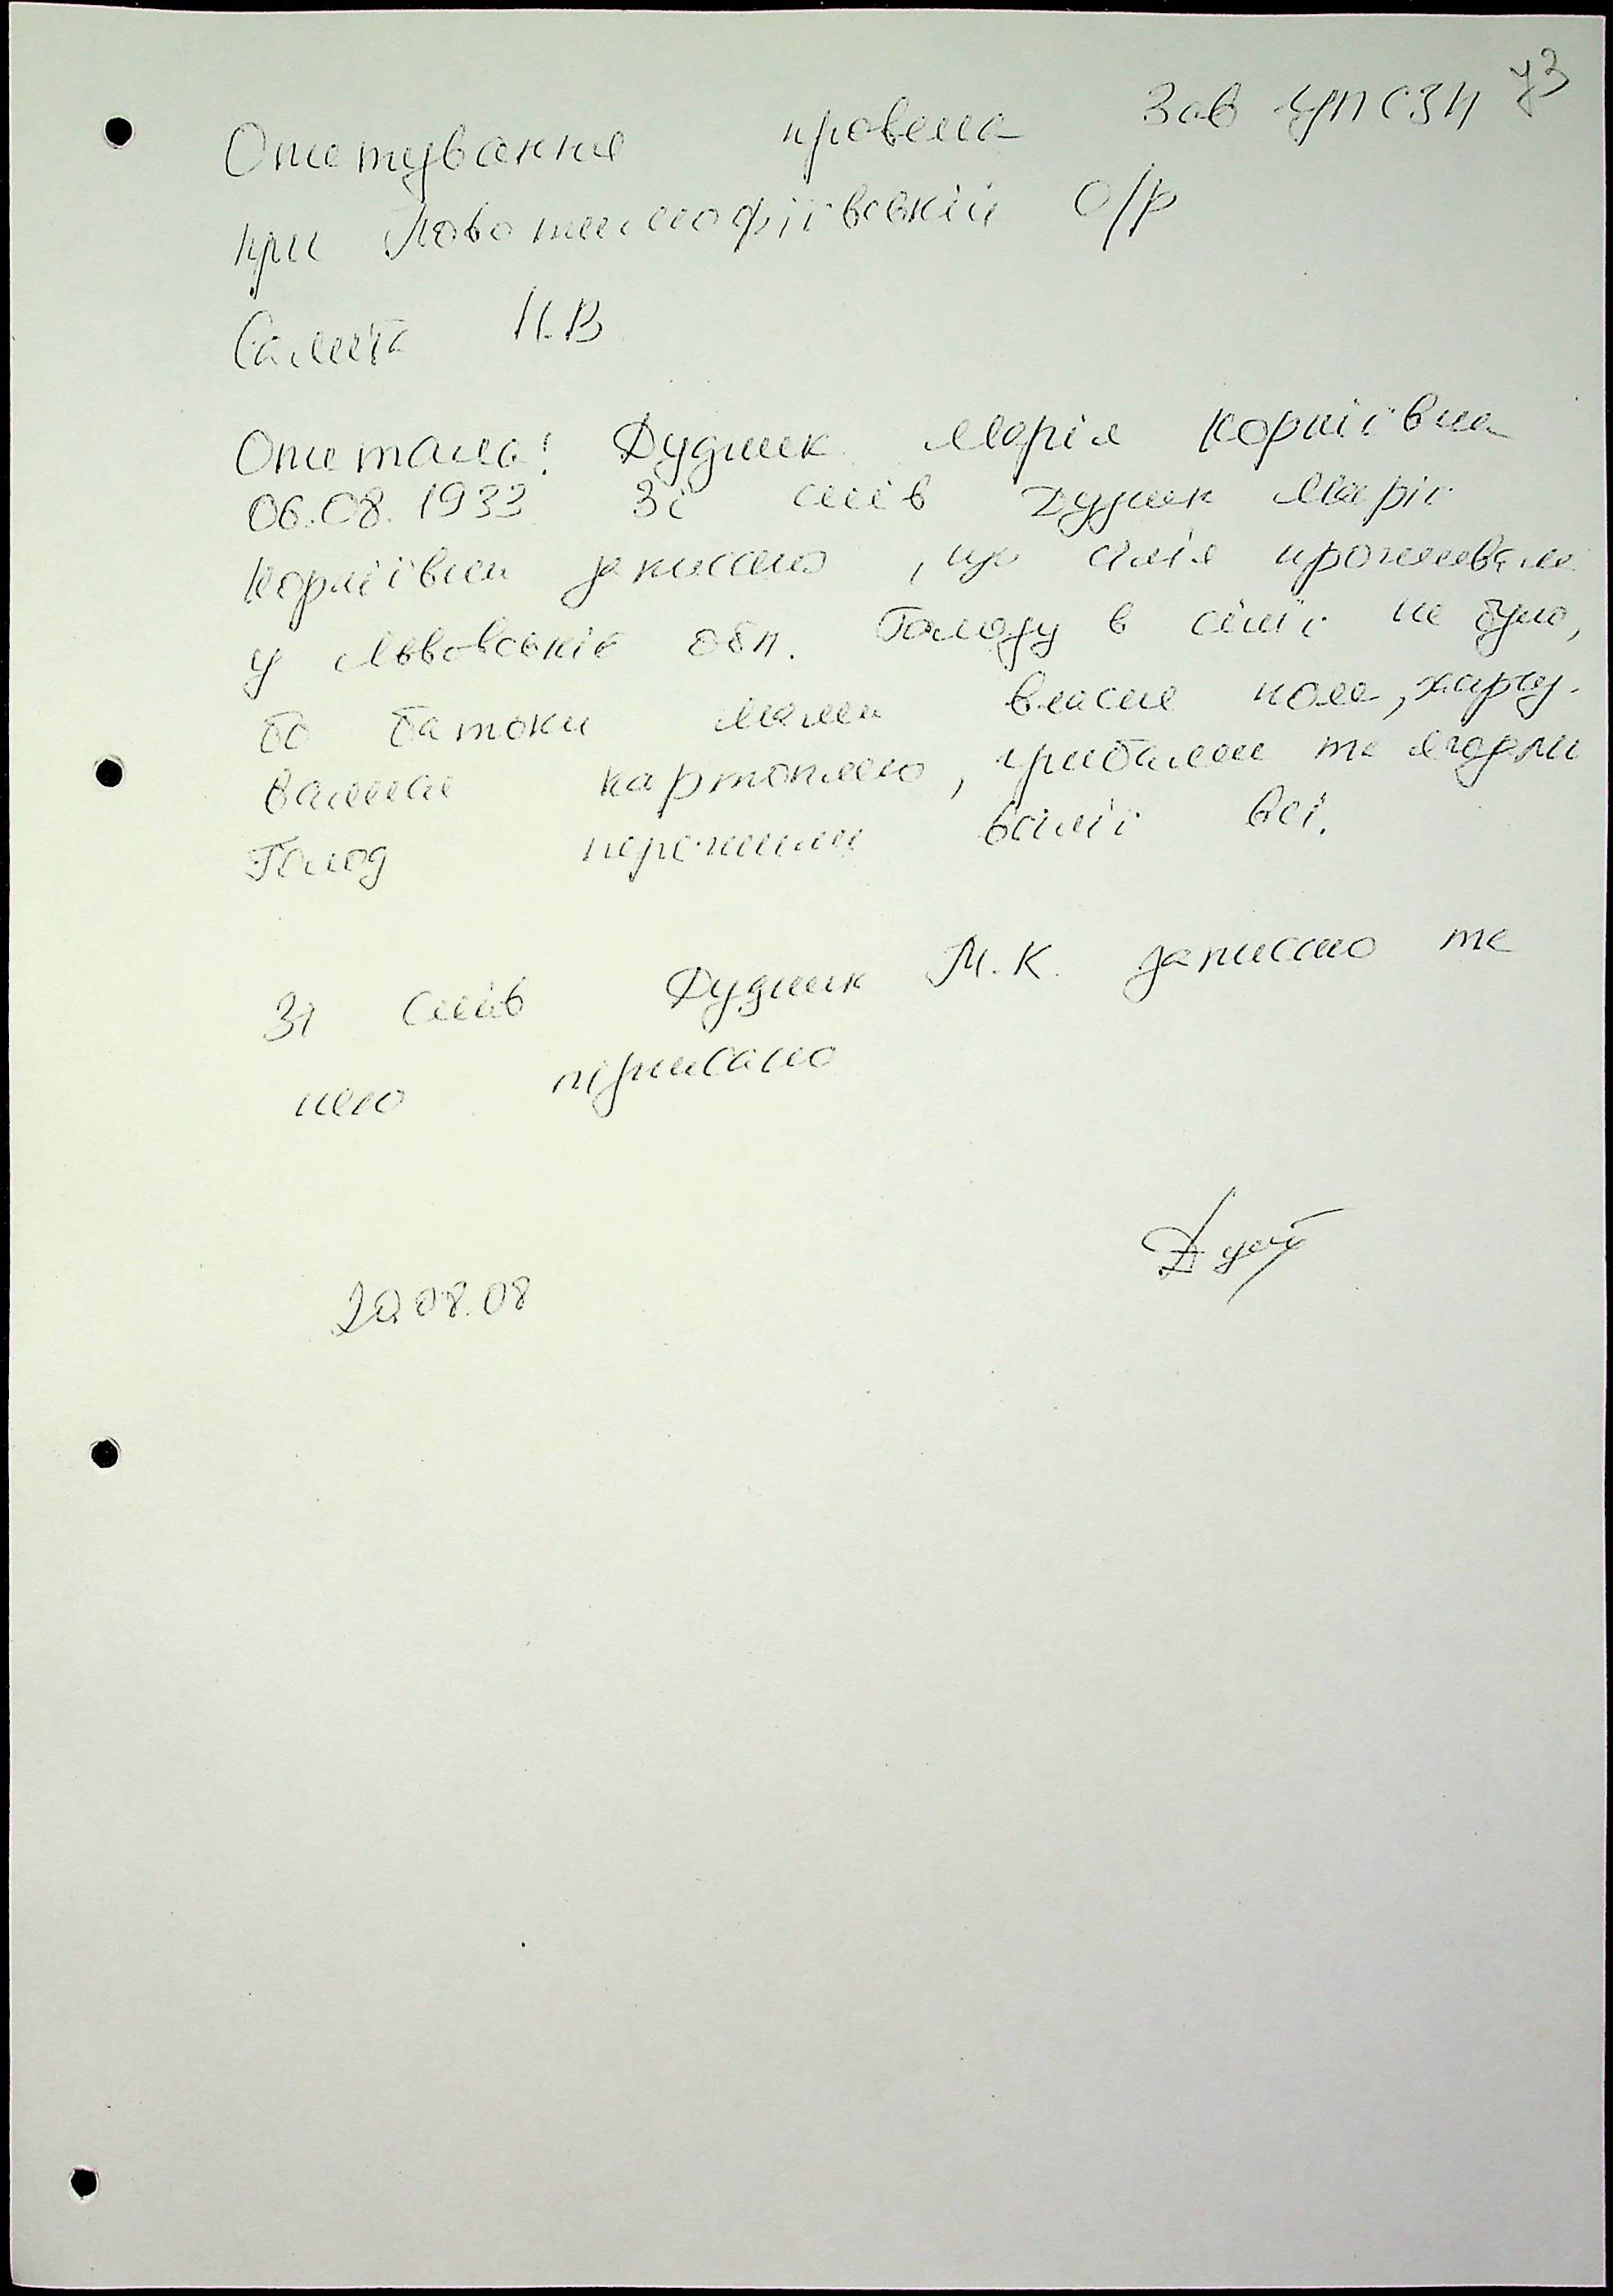 43
Опитування провела Зав ЦПСЗН
при Новотимофіївській с/р
Саміта Н.В
Опитана: Дудник Марія Корніївна
06.08.1933 Зі слів Дудник Марії
Корніївни записано, що сім'я проживала
у Львовській обл. Голоду в сім'ї не було,
бо батьки мали власне поле, харчу-
вались картоплею, грибами та ягодами
Голод пережили в сім'ї всі.
Зі слів Дудник М.К. записано та
нею підписано
20.08.08